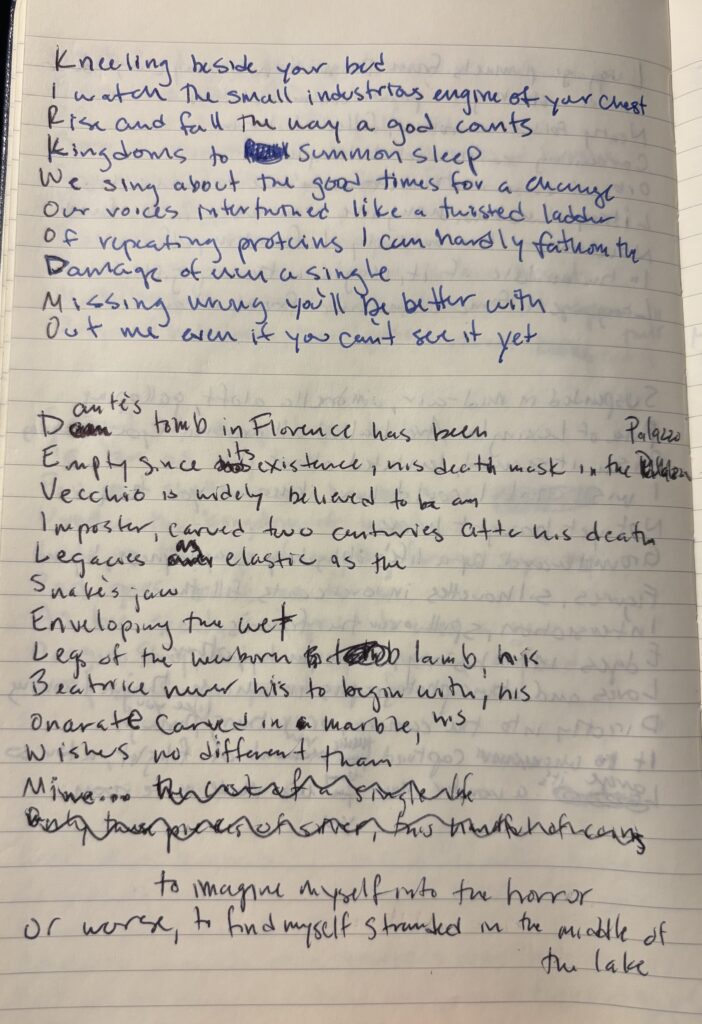 Kneeling beside your bed
I watch the small industrias engine of your chest
Rise and fall the way a god counts
Kingdoms to summon sleep
We sing about the good times for a change
Our voices intertwined like a twisted ladder
Of repeating proteins I can hardly fathom the
Damage of even a single
Missing wrung you'll be better with
Out me even if you can't see it yet
Dante's tomb in Florence has been
Empty since its existence, his death mask in the Palazzo
Vecchio is widely believed to be an
Imposter, carved two centuries after his death
Legacies as elastic as the
Snake's jaw
Enveloping the wet
Legs of the newborn lamb, his
Beatrice never his to begin with, his
Onorate carved in marble, his
Wishes no different than
Mine... the cost of a single life
to imagine myself into the horror
or worse, to find myself stranded in the middle of
the lake